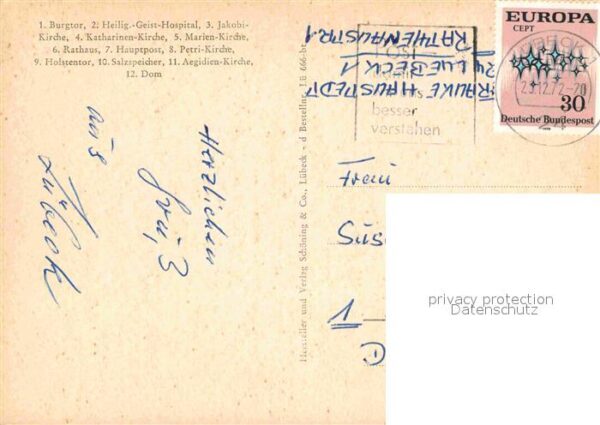 1. Burgtor, 2. Heilig.-Geist-Hospital, 3. Jakobi-
Kirche, 4. Katharinen-Kirche, 5. Marien-Kirche,
6. Rathaus, 7. Hauptpost, 8. Petri-Kirche,
9. Holstentor, 10. Salzspeicher, 11. Aegidien-Kirche,
12. Dom
Herzlichen
aus
Lübeck
Hersteller und Verlag Schöning & Co., Lübeck - d Bestellnr. LB 666
LUEBECK 1
besser
verstehen
EUROPA
CEPT
23.12.72-20
24
30
Deutsche Bundespost
Frau
privacy protection
Datenschutz